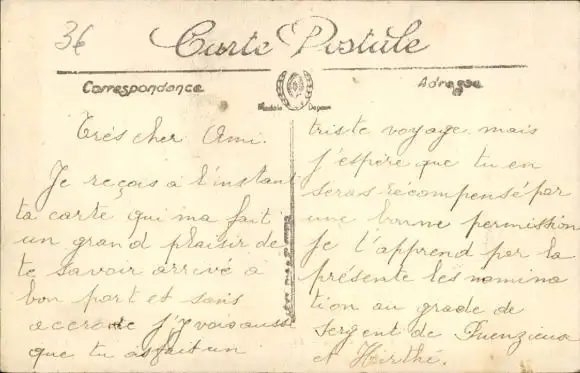 3€
Carte Postale
Correspondance
Adresse
Modèle Déposé
Très cher Ami.
Je reçois à l'instant
ta carte qui ma fait
un grand plaisir de
te savoir arrivé à
bon port et sans
j'y vois aussi
que tu as fait un
triste voyage mais
j'espère que tu en
seras récompensé par
une bonne permission
je t'apprend par la
présente les nomina
tion au grade de
Sergent de
et